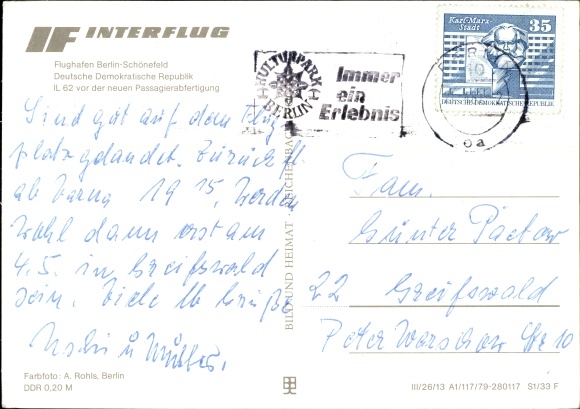 IF INTERFLUG
Flughafen Berlin-Schönefeld
Deutsche Demokratische Republik
IL 62 vor der neuen Passagierabfertigung
KULTURPARK BERLIN
Immer
ein
Erlebnis
Karl-Marx-
Stadt
35
DEUTSCHE DEMOKRATISCHE REPUBLIK
Sind gut auf dem Flug
platz gelandet. Zurück fl.
ab Varna 19 15, werden
wohl dann erst am
4.5. in Greifswald
sein. Viele lb Grüße
u
Fam.
Günter Pätow
22 Greifswald
Peter Warschow Str 10
BILD UND HEIMAT REICHENBACH
Farbfoto: A. Rohls, Berlin
DDR 0,20 M
III/26/13 A1/117/79-280117 S1/33 F